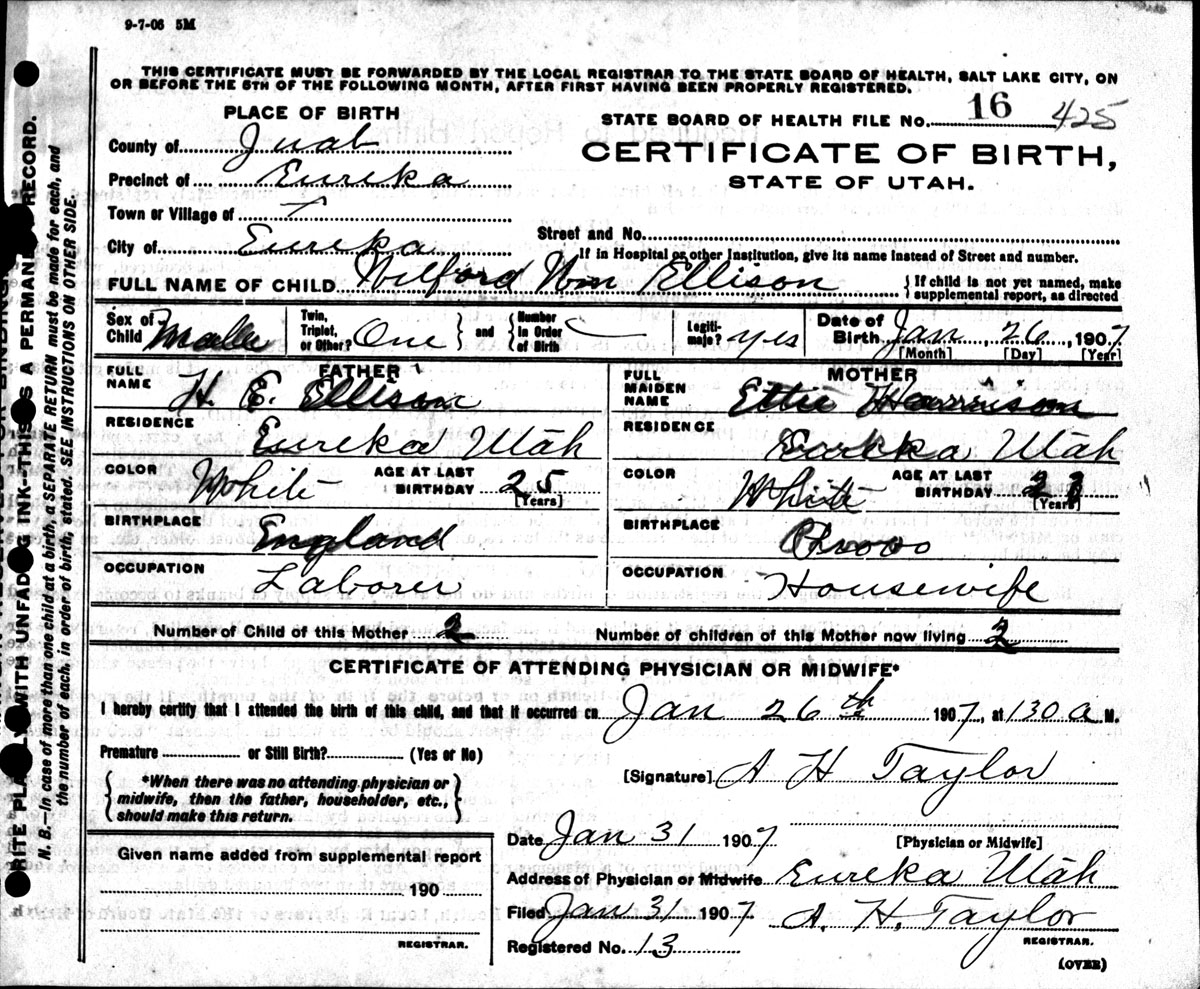 9-7-06 5M
THIS CERTIFICATE MUST BE FORWARDED BY THE LOCAL REGISTRAR TO THE STATE BOARD OF HEALTH, SALT LAKE CITY, ON
OR BEFORE THE 5TH OF THE FOLLOWING MONTH, AFTER FIRST HAVING BEEN PROPERLY REGISTERED.
PLACE OF BIRTH
STATE BOARD OF HEALTH FILE NO. 16 425
County of Juab
CERTIFICATE OF BIRTH,
Precinct of Eureka
STATE OF UTAH.
Town or Village of
Street and No.
City of Eureka
If in Hospital or other Institution, give its name instead of Street and number.
FULL NAME OF CHILD Wilford Wm Ellison { If child is not yet named, make supplemental report, as directed
Sex of Child Malle Twin, Triplet, or Other? One } and { Number in Order of Birth Legiti-mate? yes Date of Birth Jan, 26, 1907
[Month] [Day] [Year]
FATHER
MOTHER
FULL NAME H. E. Ellison
FULL MAIDEN NAME Ettie Harrison
RESIDENCE Eureka Utah
RESIDENCE Eureka Utah
COLOR White AGE AT LAST BIRTHDAY 25 [Years]
COLOR White AGE AT LAST BIRTHDAY [Years]
BIRTHPLACE England
BIRTHPLACE Provo
OCCUPATION Laborer
OCCUPATION Housewife
Number of Child of this Mother 2 Number of children of this Mother now living 2
CERTIFICATE OF ATTENDING PHYSICIAN OR MIDWIFE*
I hereby certify that I attended the birth of this child, and that it occurred on Jan 26th 1907, at 130 a M.
Premature or Still Birth? (Yes or No)
{ *When there was no attending physician or midwife, then the father, householder, etc., should make this return. }
[Signature] A H Taylor
[Physician or Midwife]
Date Jan 31 1907
Given name added from supplemental report
190
REGISTRAR.
Address of Physician or Midwife Eureka Utah
Filed Jan 31 1907 A. H. Taylor
REGISTRAR.
Registered No. 13
(OVER)
WRITE PLAINLY WITH UNFADING INK--THIS IS A PERMANENT RECORD.
N. B.--In case of more than one child at a birth, a SEPARATE RETURN must be made for each, and
the number of each, in order of birth, stated. SEE INSTRUCTIONS ON OTHER SIDE.